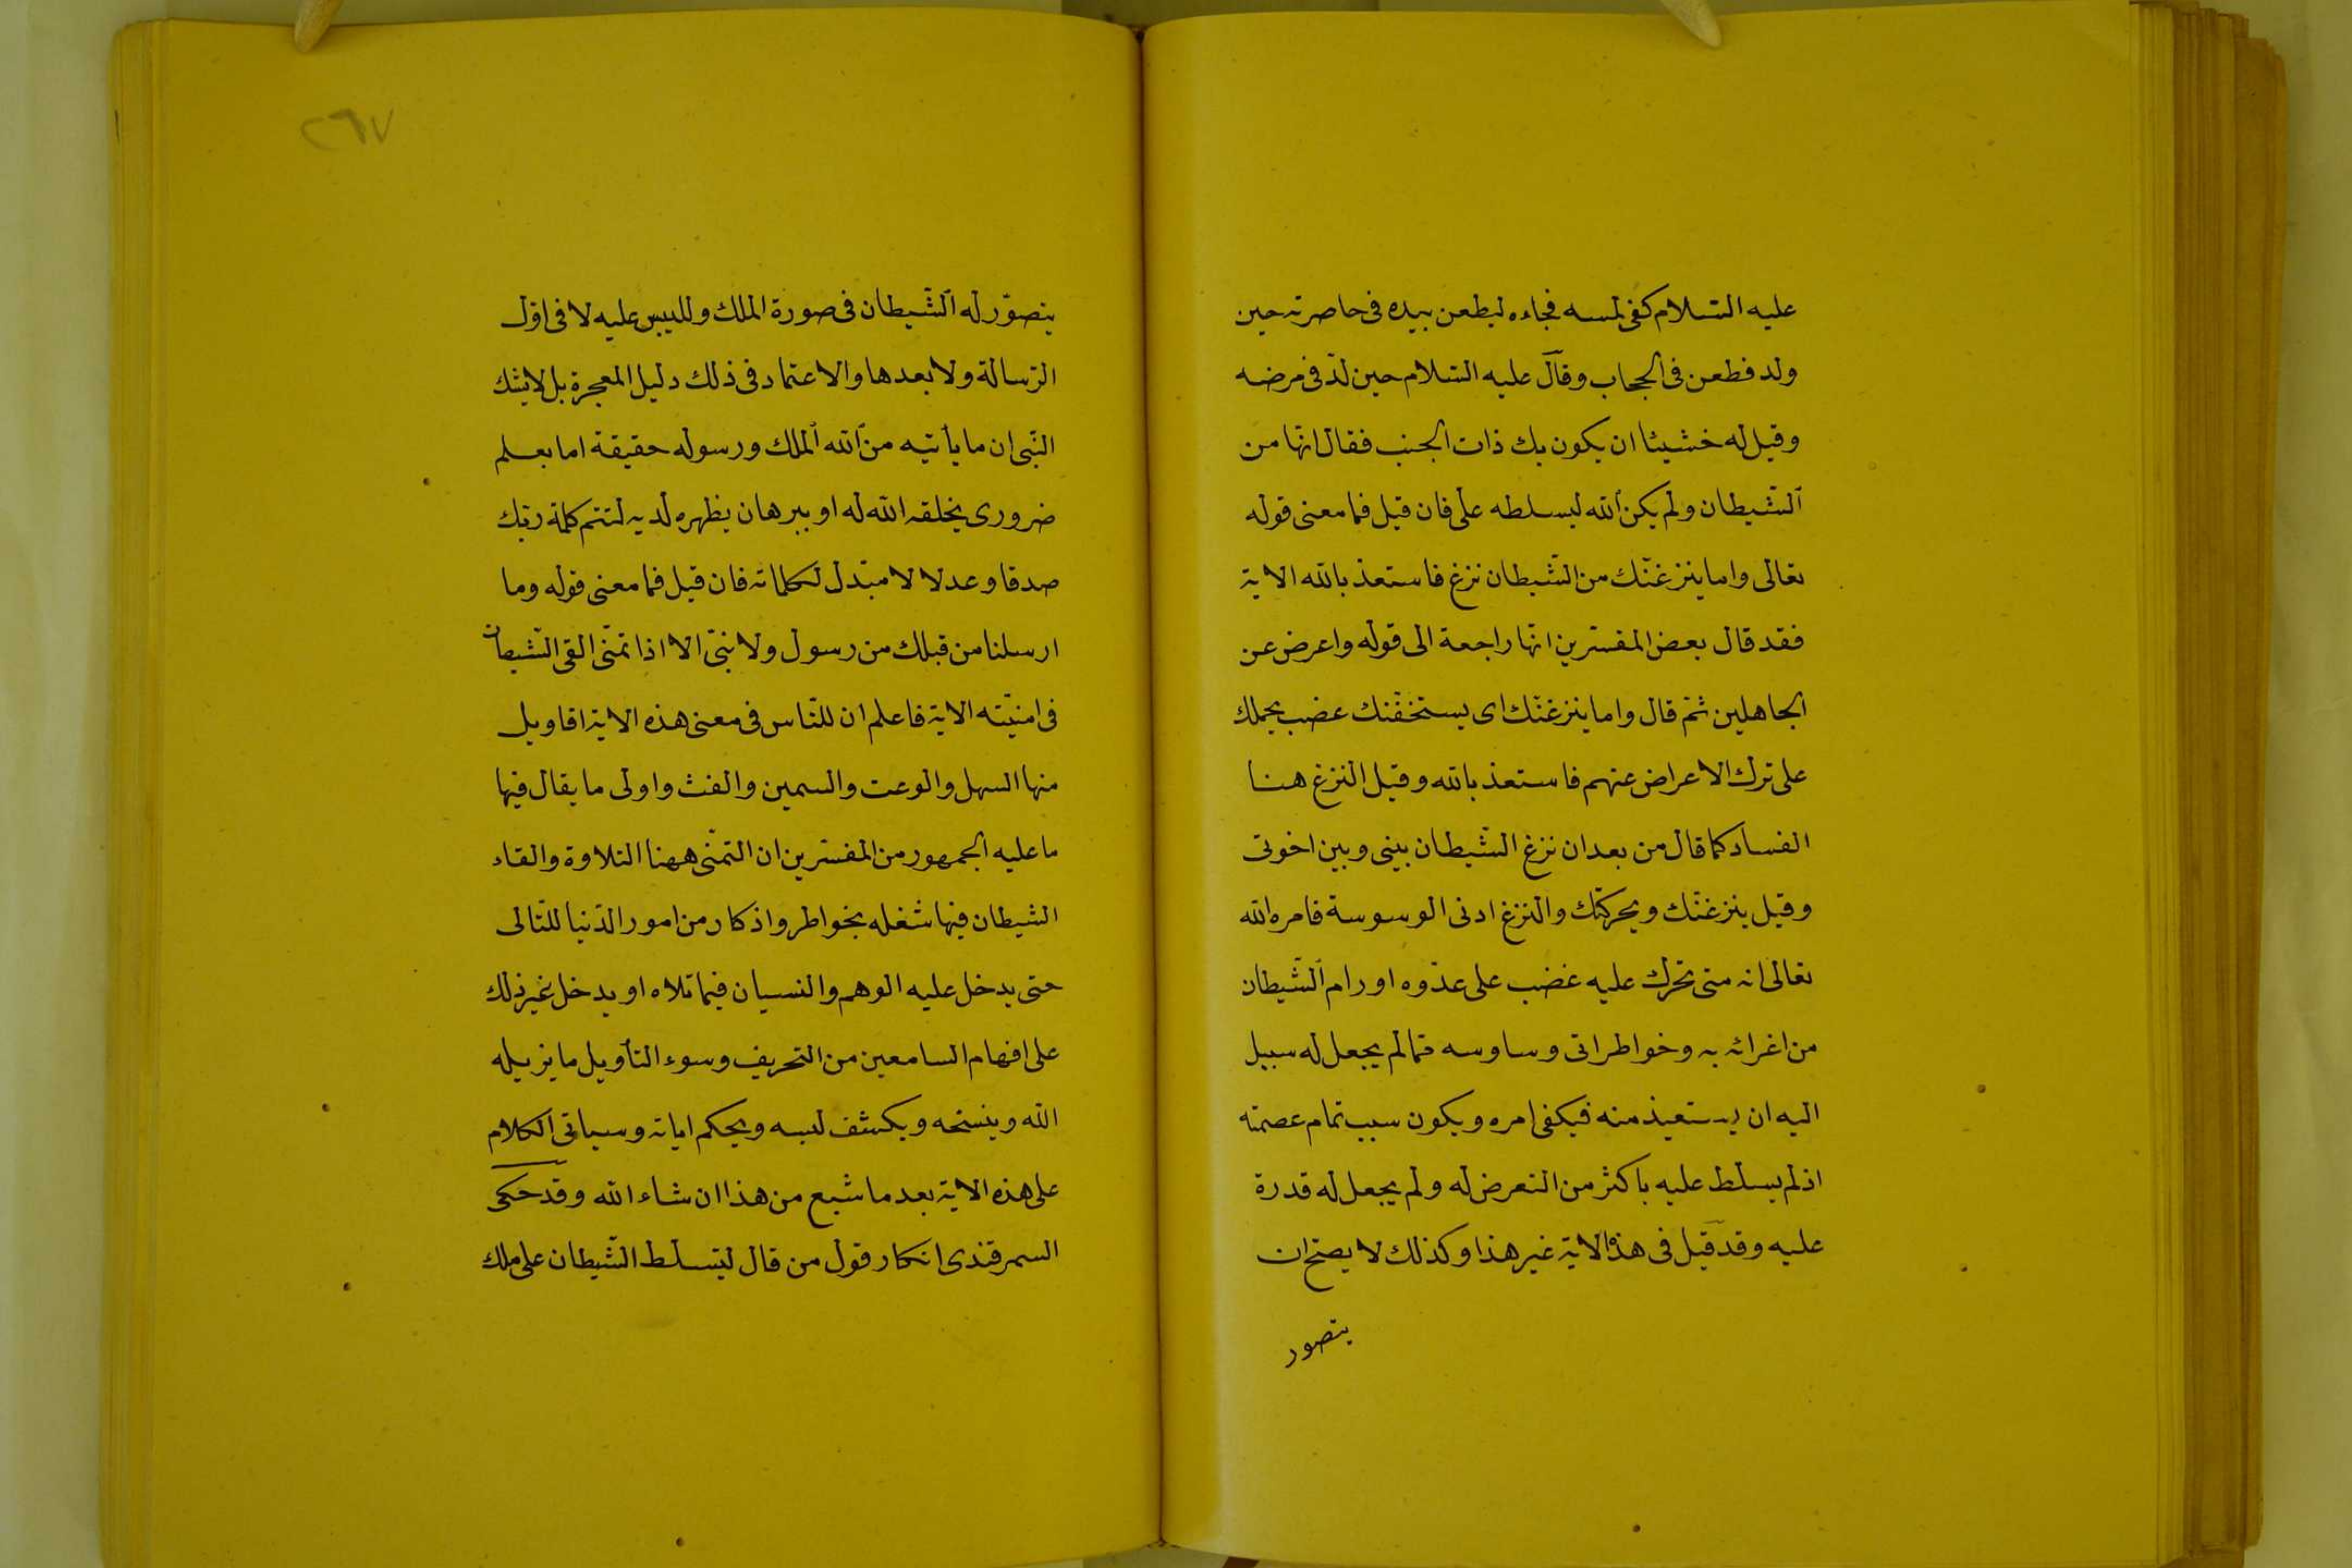 عليه السلام كفى لمسه فجاءه ليطعن بيده فى خاصرته حين
ولد فطعن فى الحجاب وقال عليه السلام حين لدّ فى مرضه
وقيل له خشينا ان يكون بك ذات الجنب فقال انها من
الشّيطان ولم يكن الله ليسلطه علىّ فان قيل فما معنى قوله
تعالى واما ينزغنّك من الشّيطان نزغ فاستعذ بالله الاية
فقد قال بعض المفسّرين انّها راجعة الى قوله واعرض عن
الجاهلين ثمّ قال واما ينزغنّك اى يستخفّنك غضب يحملك
على ترك الاعراض عنهم فاستعذ بالله وقيل النزغ هنا
الفساد كما قال من بعد ان نزغ الشّيطان بينى وبين اخوتى
وقيل ينزغنّك ويحركنّك والنزغ ادنى الوسوسة فامره الله
تعالى انه متى تحرك عليه غضب على عدّوه او رام الشّيطان
من اغرائه به وخواطر اتى وساوسه ممّا لم يجعل له سبيل
اليه ان يستعيذ منه فيكفى امره ويكون سبب تمام عصمته
اذ لم يسلّط عليه باكثر من التعرض له ولم يجعل له قدرة
عليه وقد قيل فى هذه الاية غير هذا وكذلك لا يصحّ ان
يتصور
٢٦٧
يتصوّر له الشّيطان فى صورة الملك ولليبس عليه لا فى اوّل
الرّسالة ولا بعدها والاعتماد فى ذلك دليل المعجزة بل لايشك
النّبى ان ما يأتيه من الله الملك ورسوله حقيقة اما بعلم
ضرورى يخلقه الله له او ببرهان يظهره لديه لتتم كلمة ربّك
صدقا وعدلا لا مبّدل لكلماته فان قيل فما معنى قوله وما
ارسلنا من قبلك من رسول ولا نبّى الا اذا تمنّى القى الشّيطان
فى امنيّته الاية فاعلم ان للنّاس فى معنى هذه الاية اقاويل
منها السهل والوعت والسمين والغث واولى ما يقال فيها
ما عليه الجمهور من المفسّرين ان التمنّى ههنا التلاوة والقاء
الشيطان فيها شغله بخواطر واذكار من امور الدّنيا للتّالى
حتى يدخل عليه الوهم والنسيان فيما تلاه او يدخل غير ذلك
على افهام السامعين من التحريف وسوء التأويل ما يزيله
الله وينسخه ويكشف لبسه ويحكم اياته وسياتى الكلام
على هذه الاية بعد ما شبع من هذا ان شاء الله وقد حكى
السمرقندى انكار قول من قال ليتسلّط الشّيطان على ملك